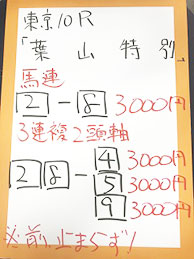 東京10R
「葉山特別」
馬連
2-8 3000円
3連複2頭軸
4 3000円
28-5 3000円
9 3000円
※前止まらず!